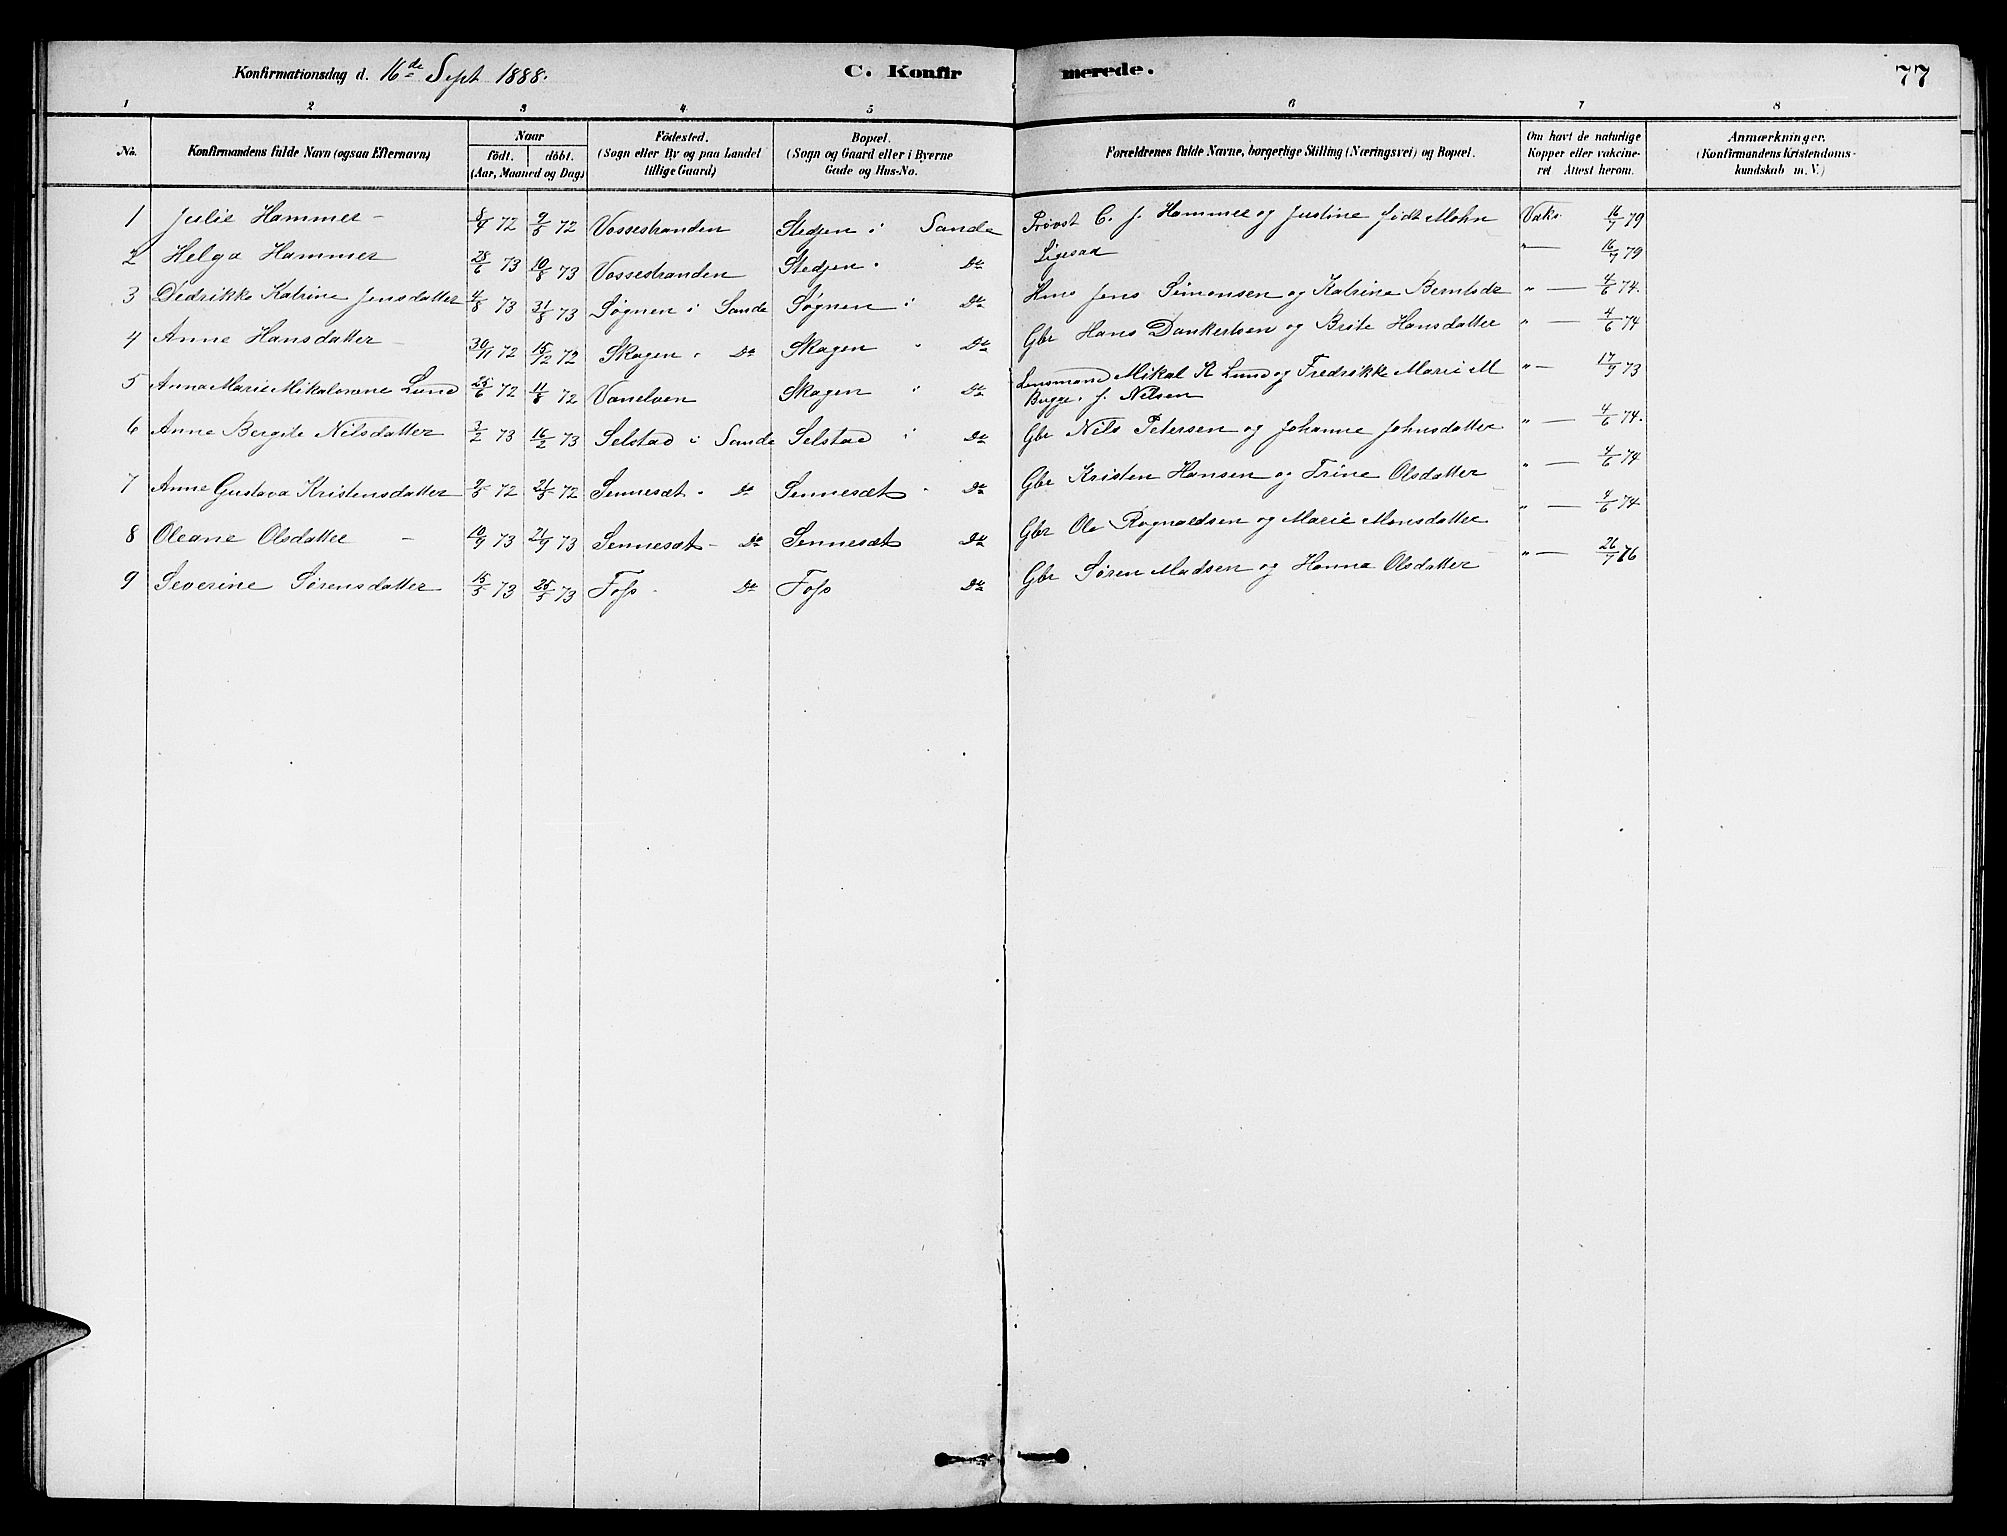 Konfirmationsdag d. 16de Sept 1888. C. Konfirmerede. 77
1 2 3 4 5 6 7 8
No. Konfirmandens fulde Navn (ogsaa Efternavn) Naar födt. döbt. (Aar, Maaned og Dag) Födested. (Sogn eller By og paa Landet tillige Gaard) Bopæl. (Sogn og Gaard eller i Byerne Gade og Hus-No. Forældrenes fulde Navne, borgerlige Stilling (Næringsvei) og Bopæl. Om havt de naturlige Kopper eller vakcineret Attest herom. Anmærkninger. (Konfirmandens Kristendomskundskab m. V.)
1 Julie Hammer - 8/4 72 9/8 72 Vossestranden Stedjen i Sande Provst C. J. Hammer og Justine født Mohn Vaks 16/7 79
2 Helga Hammer 28/6 73 10/8 73 Vossestranden Stedjen " Do Ligesaa " — 16/7 79
3 Didrikke Katrine Jensdatter 4/8 73 31/8 73 Søgnen i Sande Søgnen i Do Hms Jens Simonsen og Katrine Berntsdr " — 4/6 74.
4 Anne Hansdatter - 30/11 72 15/12 72 Skagen " Do Skagen " Do Gbr Hans Dankertsen og Brite Hansdatter " — 4/6 74
5 Anna Marie Mikalovene Lund 25/6 72 11/8 72 Vanelven Skagen i Do Lensmand Mikal R Lund og Fredrikke Marie M Bugge f. Nilsen " — 17/9 73
6 Anne Bergite Nilsdatter 3/2 73 16/2 73 Selstad i Sande Selstad i Do Gbr Nils Petersen og Johanne Johnsdatter " — 4/6 74.
7 Anne Gustava Kristensdatter 9/8 72 21/8 72 Sennesæt " Do Sennesæt " Do Gbr Kristen Hansen og Trine Olsdatter " — 4/6 74
8 Oleane Olsdatter - 10/9 73 21/9 73 Sennesæt - Do Sennesæt Do Gbr Ole Rognaldsen og Marie Monsdatter " — 4/6 74
9 Severine Sørensdatter 15/5 73 25/5 73 Foss " Do Foss Do Gbr Søren Madsen og Hanna Olsdatter " — 26/7 76